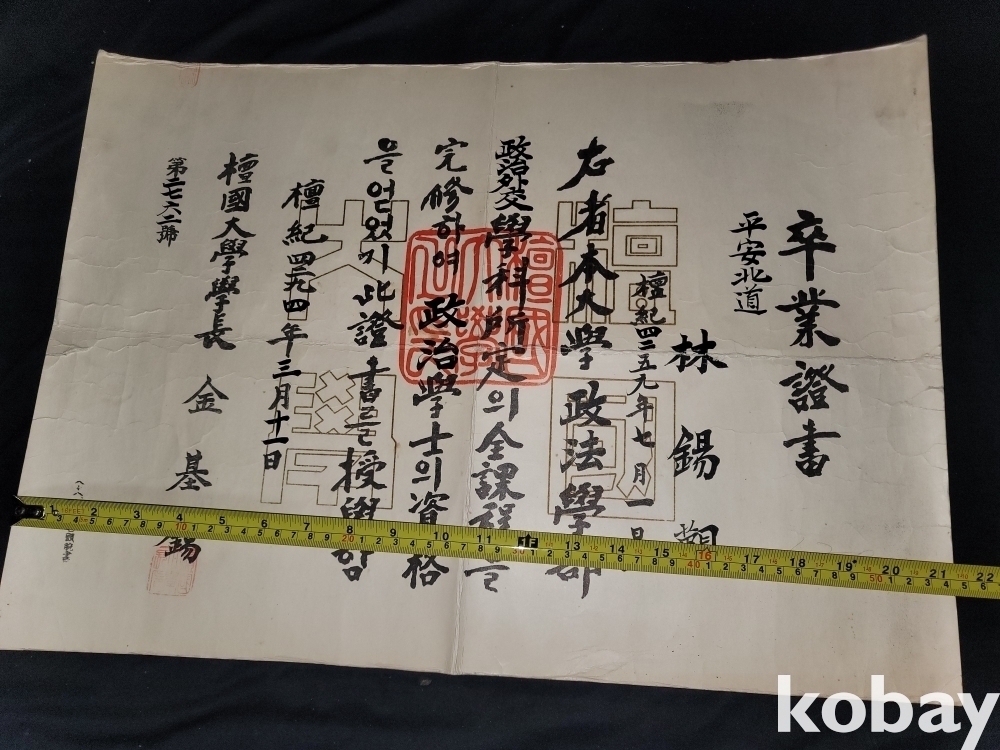 卒業證書
平安北道
林錫
檀紀四二五九年七月一日
右者本大學政法學部
政治外交學科所定의全課程을
完修하여政治學士의資格
을얻었기此證書를授與함
檀紀四二九四年三月十二日
檀國大學學長 金基錫
第二七六二號
檀國大學
kobay